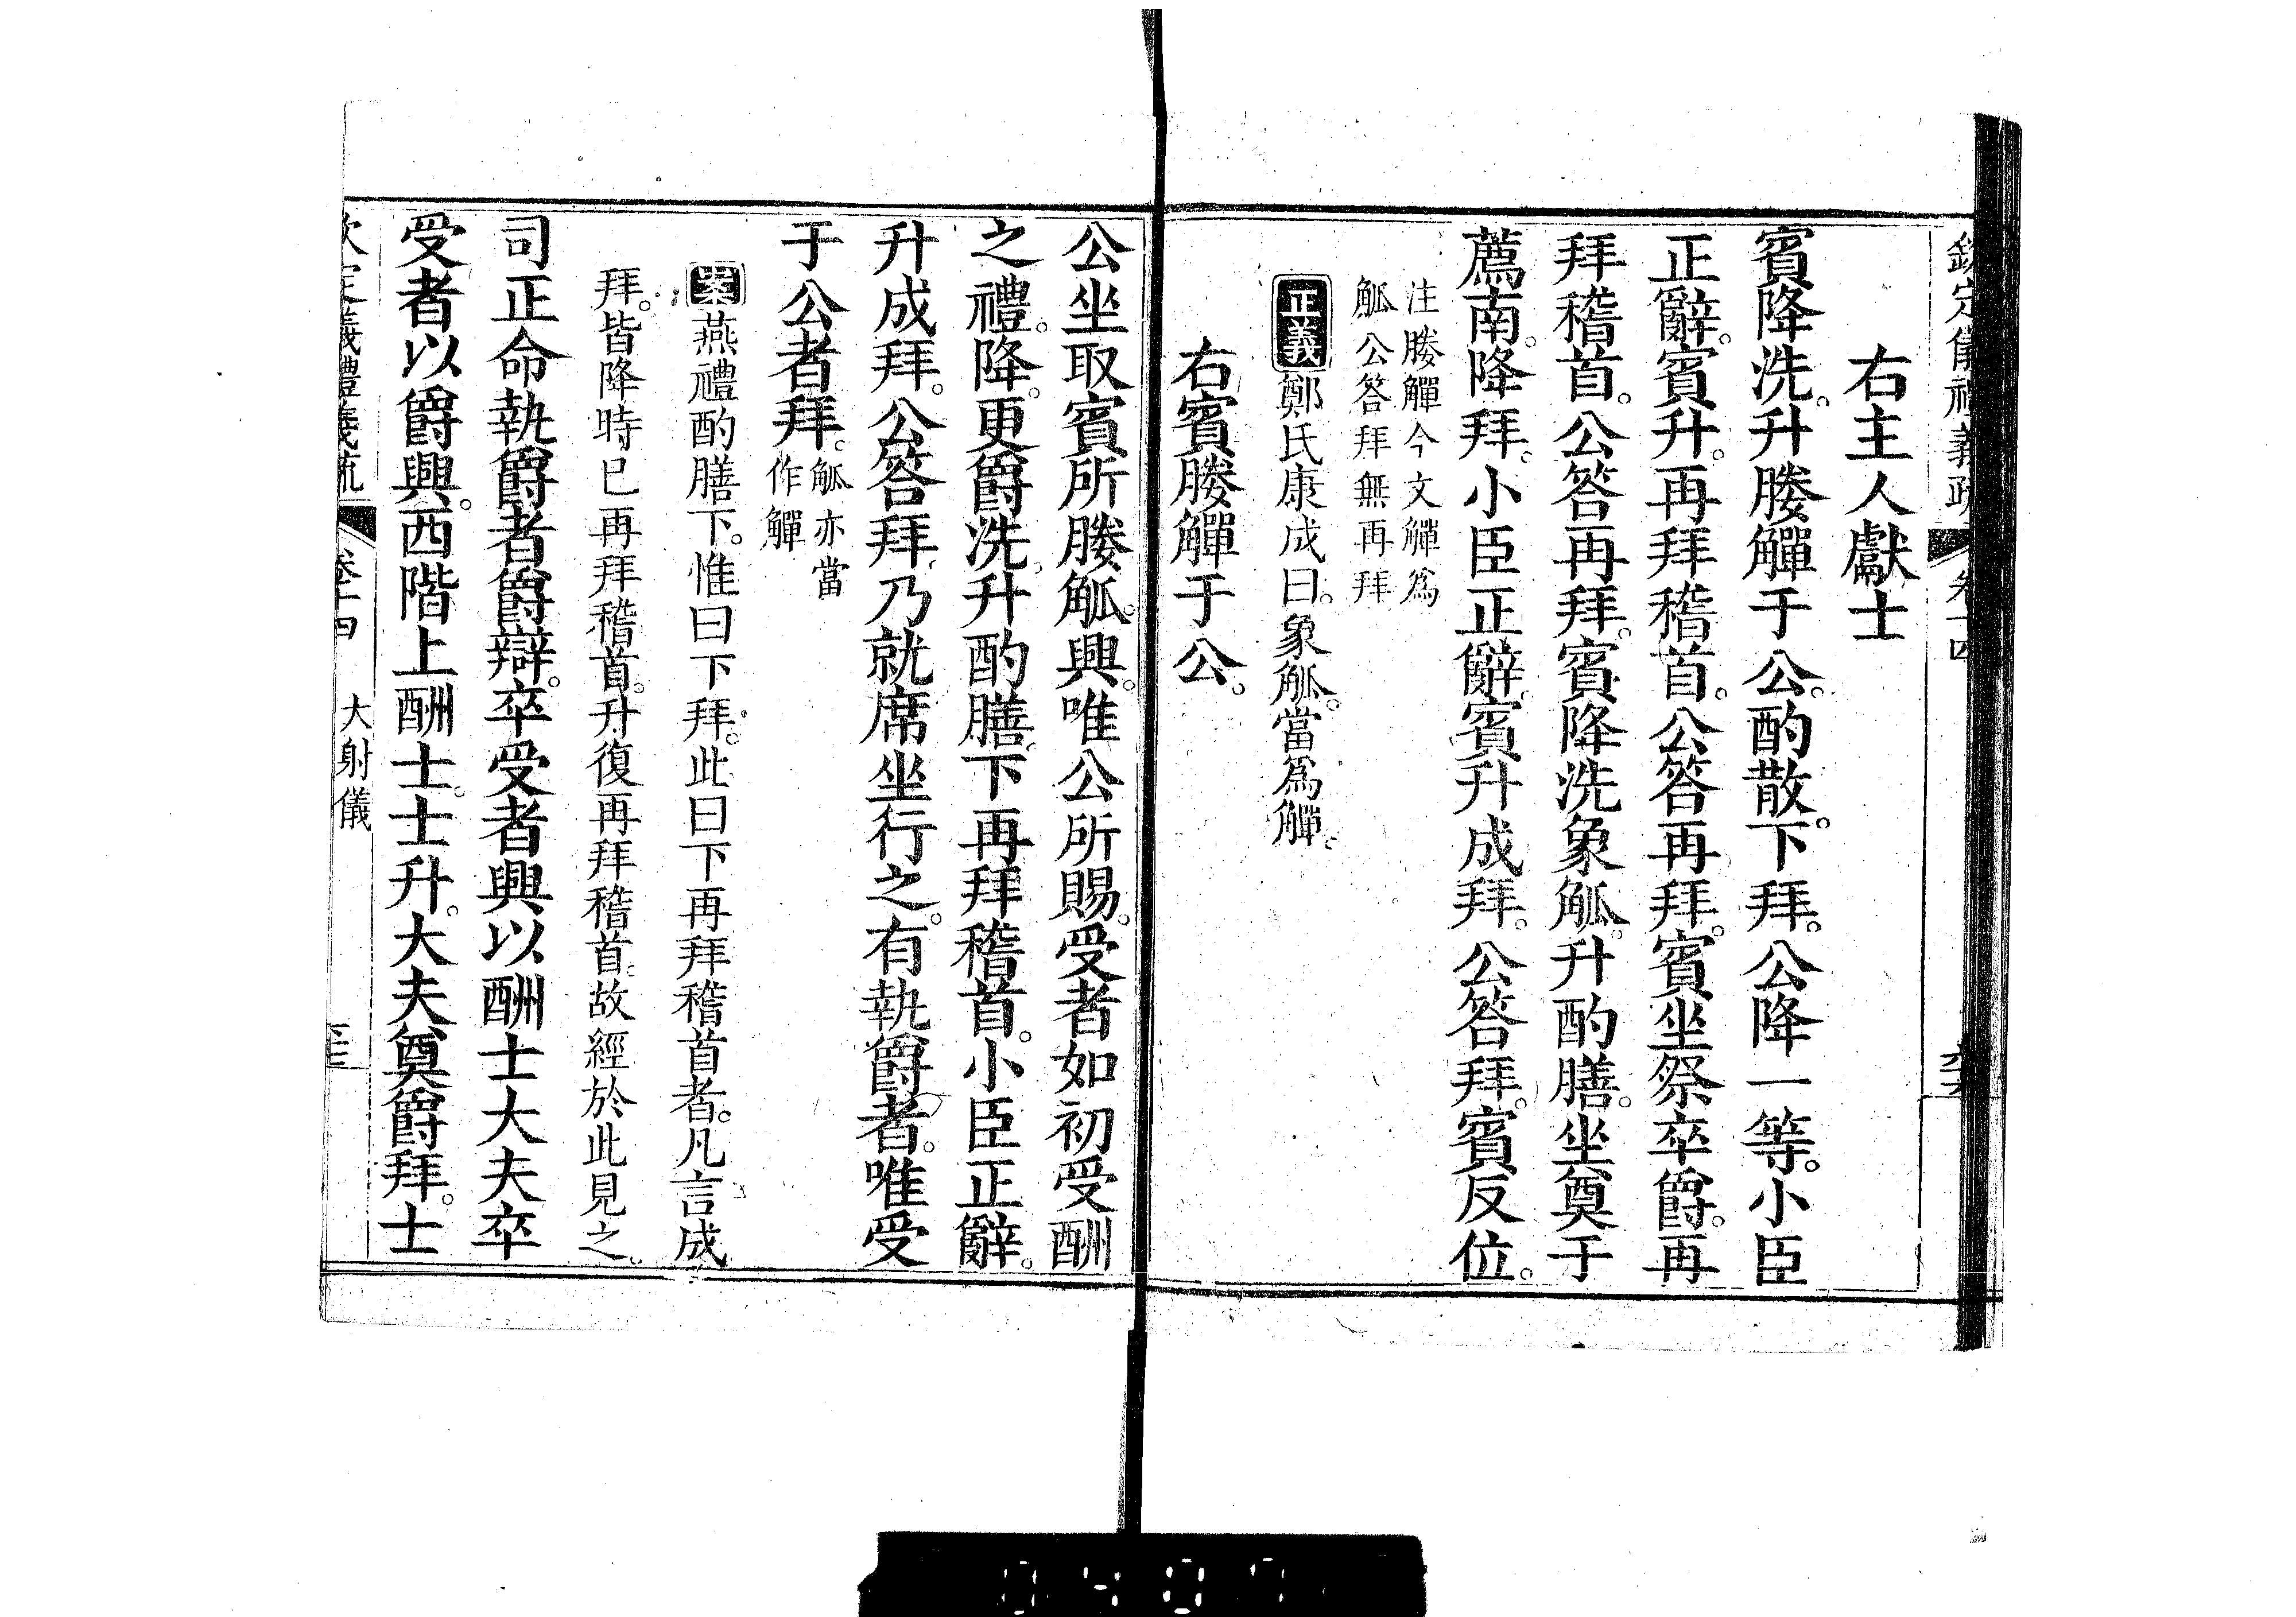 欽定儀禮義疏 卷十四
右主人獻士
賓降洗。升媵觶于公。酌散。下拜。公降一等。小臣
正辭。賓升。再拜稽首。公答再拜。賓坐祭卒爵。再
拜稽首。公答再拜。賓降洗象觚。升酌膳。坐奠于
薦南。降拜。小臣正辭。賓升成拜。公答拜。賓反位。
注媵觶今文觶爲
觚公答拜無再拜
正義鄭氏康成曰。象觚。當爲觶。
右賓媵觶于公。
公坐取賓所媵觚。興。唯公所賜。受者如初受酬
之禮。降。更爵洗。升酌膳。下再拜稽首。小臣正辭。
升成拜。公答拜。乃就席坐行之。有執爵者。唯受
于公者拜。
觚亦當
作觶
案燕禮酌膳下。惟曰下拜。此曰下再拜稽首者。凡言成
拜。皆降時已再拜稽首。升復再拜稽首。故經於此見之。
司正命執爵者爵辯。卒受者興以酬士大夫卒
受者以爵興。西階上酬士。士升。大夫奠爵拜。士
欽定義禮義疏 卷十四 大射儀